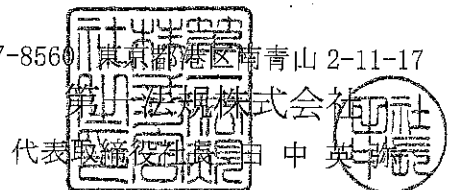 7-8560 東京都港区南青山 2-11-17
第一法規株式会社
代表取締役社長 田 中 英 弥